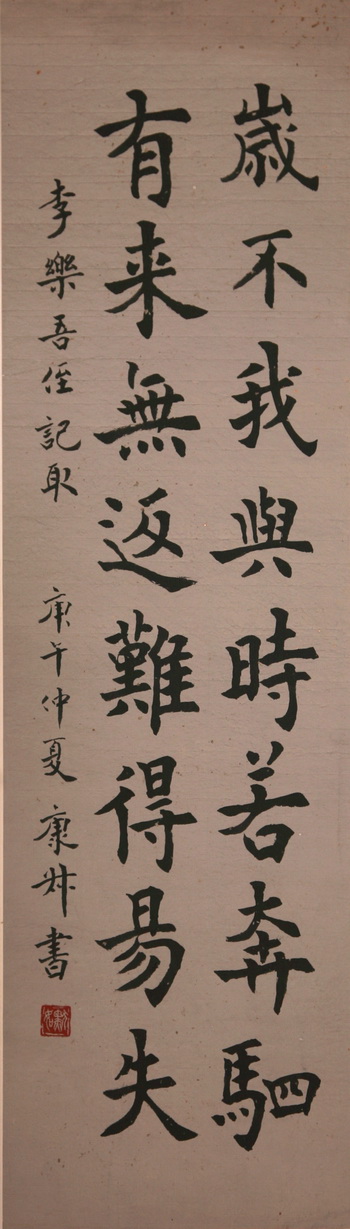 歲不我與時若奔駟
有来無返難得易失
李樂吾侄記取 庚午仲夏 康㳺書